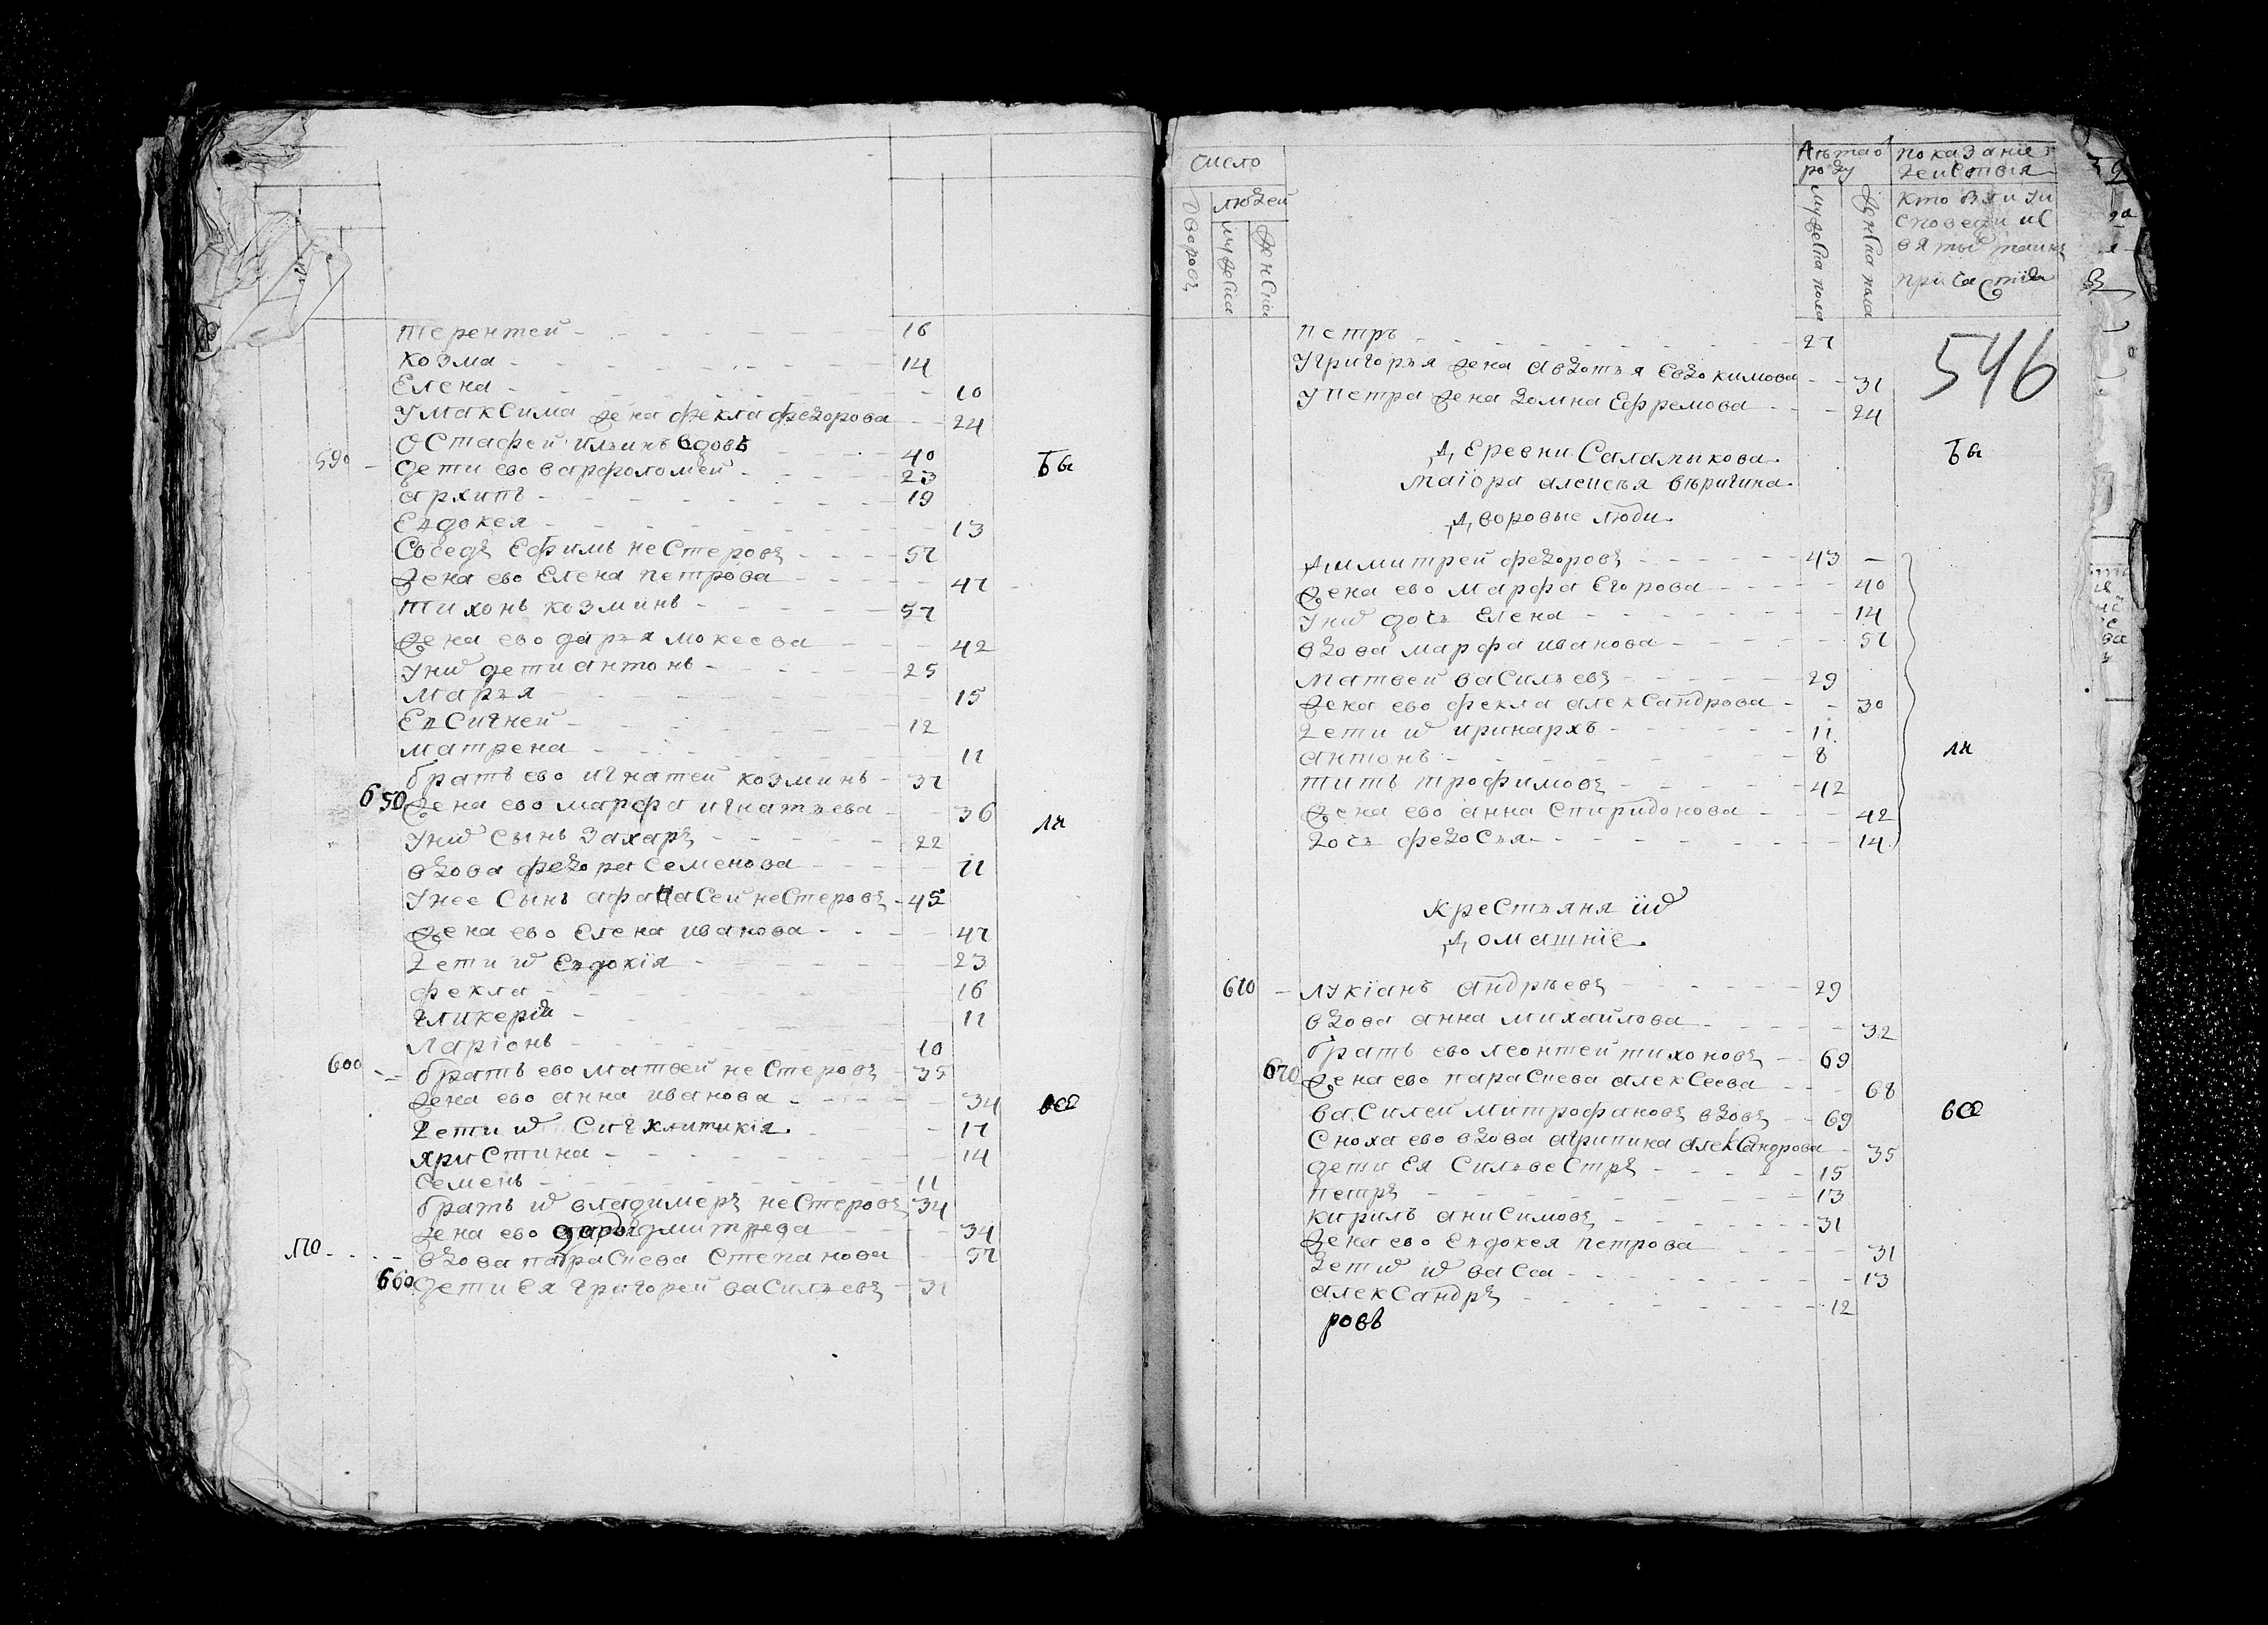 терентей 16
козма 14
Елена 10
У максима жена фекла федорова 24
Остафей ильинъ вдовъ 40
590 дети ево варфоломей 23
архипъ 19
Бы
Евдокея 13
Соседъ Ефимъ неСтеровъ 57
жена ево Елена петрова 47
тихонъ козминъ 57
жена ево даръя мокеева 42
У ниѡ дети антонъ 25
маръя 15
ЕвСигней 12
матрена 11
братъ ево игнатей козминъ 37
650 жена ево марфа игнатъева 36
ли
У ниѡ Сынъ Захаръ 22
вдова федора Семенова 71
У нее Сынъ афанаСей неСтеровъ 45
жена ево Елена иванова 47
дети иѡ Евдокїя 23
фекла 16
гликерїя 11
Ларїонъ 10
600 братъ ево матвей неСтеровъ 35
жена ево анна иванова 34
все
дети иѡ Сигклитикїя 17
хриСтина 14
Семенъ 11
братъ иѡ владимеръ неСтеровъ 34
жена ево дмитрева 34
вдова параСкева Степанова 57
660 дети Ея григорей ваСильевъ 31
число
дворовъ
людей
мужеска
женска
Лѣта от роду
мужеска пола
женска пола
показанїе действїя
кто был у и
споведи и С
вятых таинъ
причастїя
546
петръ 27
У григоръя жена авдотъя Евдокимова 31
У петра жена домна Ефремова 24
Деревни Саламыкова
Бы
маїора алеѯея вѣригина
Дворовые люди
Димитрей федоровъ 43
жена ево марфа Егорова 40
У ниѡ дочь Елена 14
вдова марфа иванова 57
матвей ваСильевъ 29
жена ево фекла алекСандрова 30
дети иѡ иринархъ 11
антонъ 8
ли
титъ трофимовъ 42
жена ево анна Спиридонова 42
дочь федоСъя 14
КреСтъяня иѡ
Домашнїе
610 лукїанъ андрѣевъ 29
вдова анна михайлова 32
братъ ево леонтей тихоновъ 69
670 жена ево параСкева алекСеева 68
ваСилей митрофановъ вдовъ 69
все
Сноха ево вдова агрипина алекСандрова 35
дети Ея СилвеСтръ 15
петръ 13
кирилъ аниСимовъ 31
жена ево Евдокея петрова 31
дети иѡ ваСса 13
алекСандръ 12
ровъ